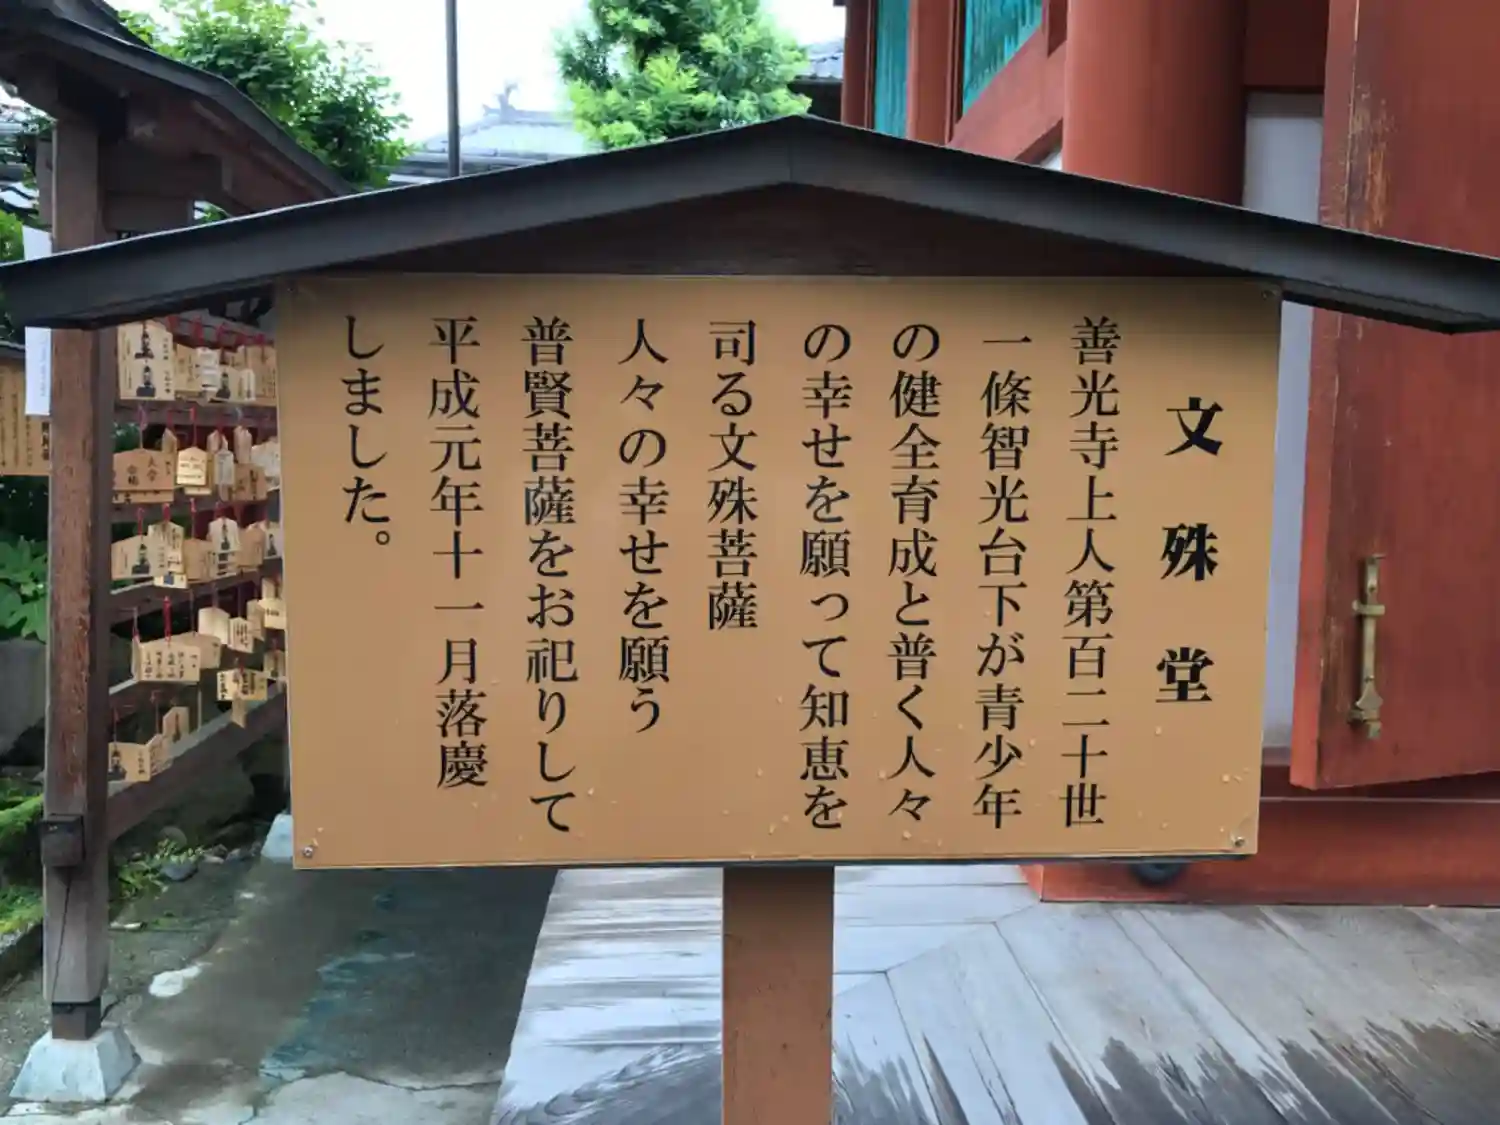 文殊堂
善光寺上人第百二十世
一條智光台下が青少年
の健全育成と普く人々
の幸せを願って知恵を
司る文殊菩薩
人々の幸せを願う
普賢菩薩をお祀りして
平成元年十一月落慶
しました。